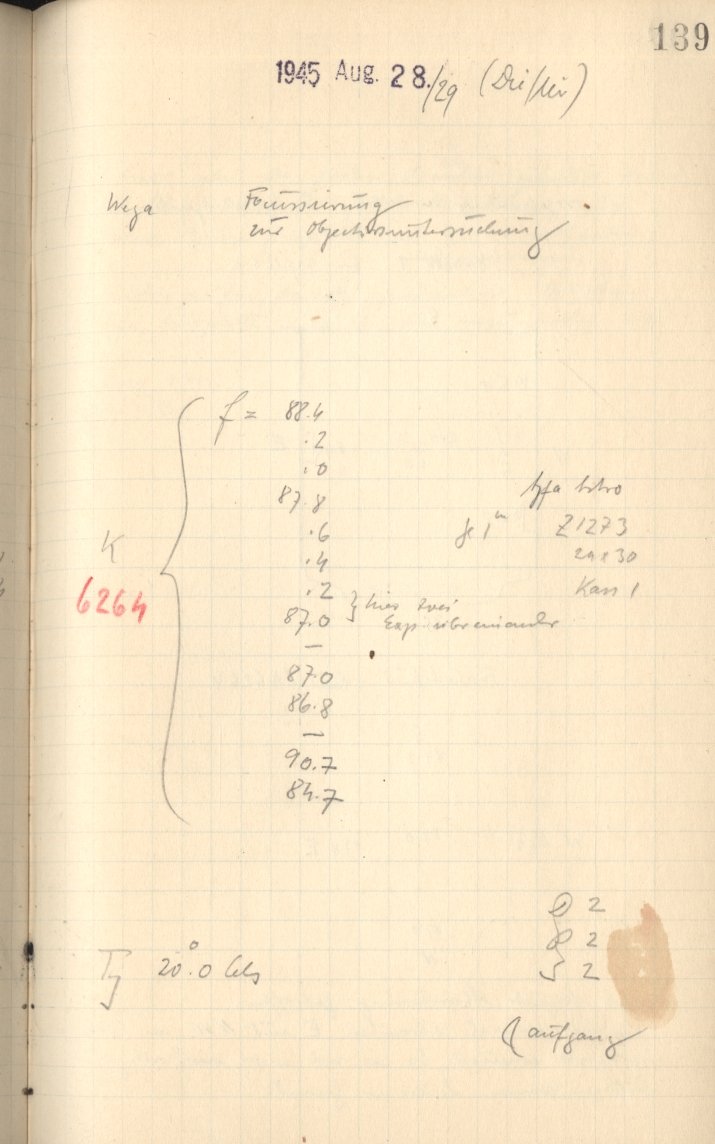 139
1945 Aug. 28./29
Wega Focussierung
zur Objectivuntersuchung
f = 88.4
.2
.0
87.8
Agfa Astro
.6 je 1ᵐ Z1273
.4 24x30
K .2 Kass 1
6264 87.0 } hier zwei
Exp. übereinander
—
87.0
86.8
—
90.7
84.7
2
2
T 20°.0 Cels 2
( aufgang